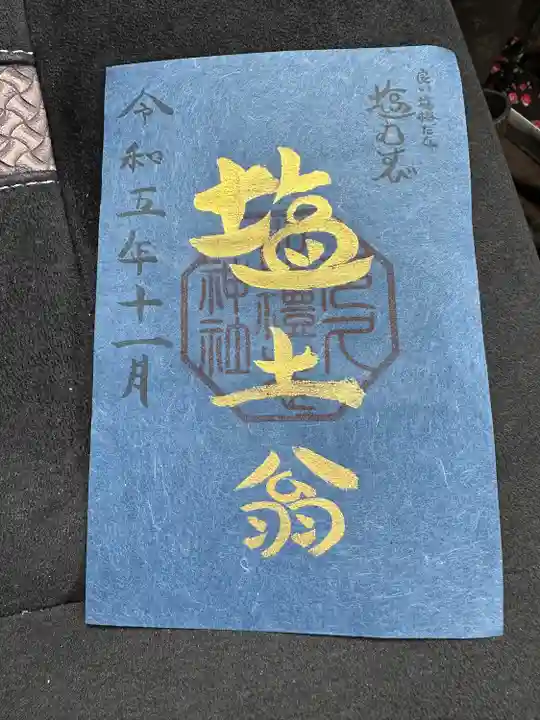 良い塩梅だな
塩むすび
塩土翁
神社
令和五年十一月